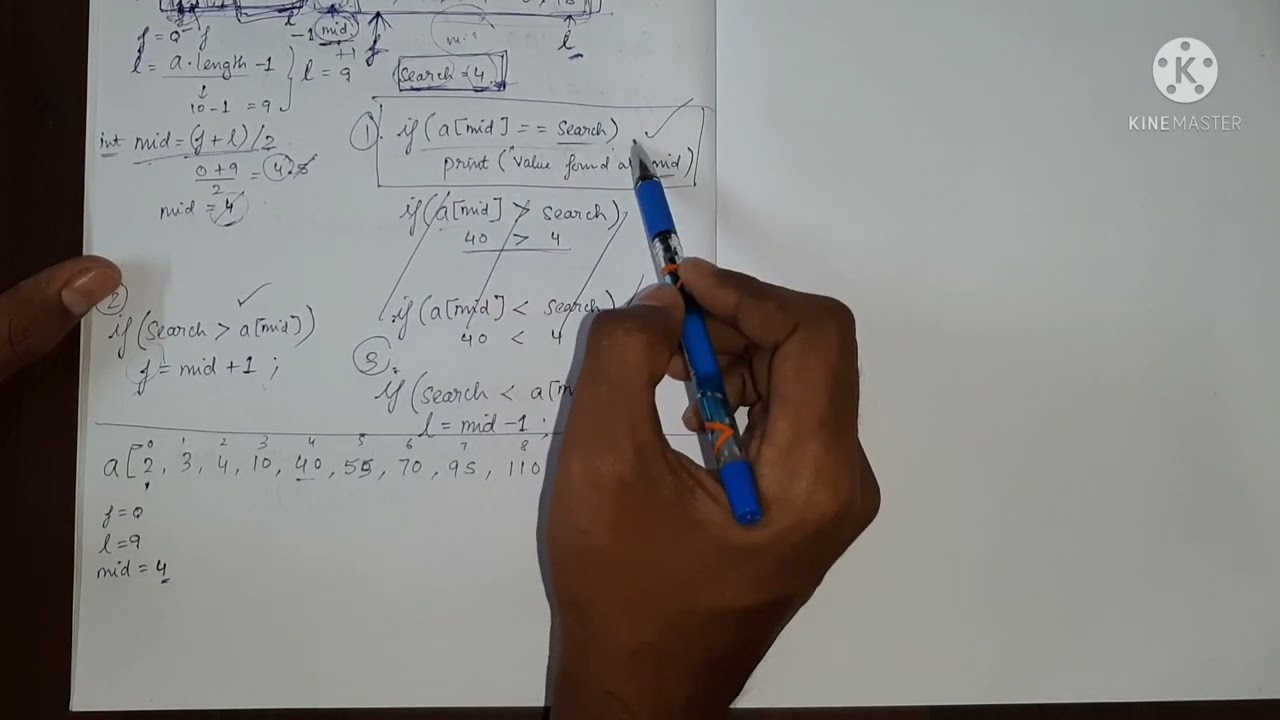 f=0
l = a.length -1
10-1 = 9
l = 9
-1 mid
+1
f
l
search = 4
int mid = (f + l) / 2
0+9
2
= 4.5
mid = 4
① if (a[mid] == search)
print ("Value found at mid)
if (a[mid] > search)
40 > 4
if (a[mid] < search)
40 < 4
②
if (search > a[mid])
f = mid +1 ;
③
if (search < a[m
l = mid -1 ;
0 1 2 3 4 5 6 7 8
a [ 2, 3, 4, 10, 40, 55, 70, 95, 110
f=0
l=9
mid = 4
K
KINEMASTER